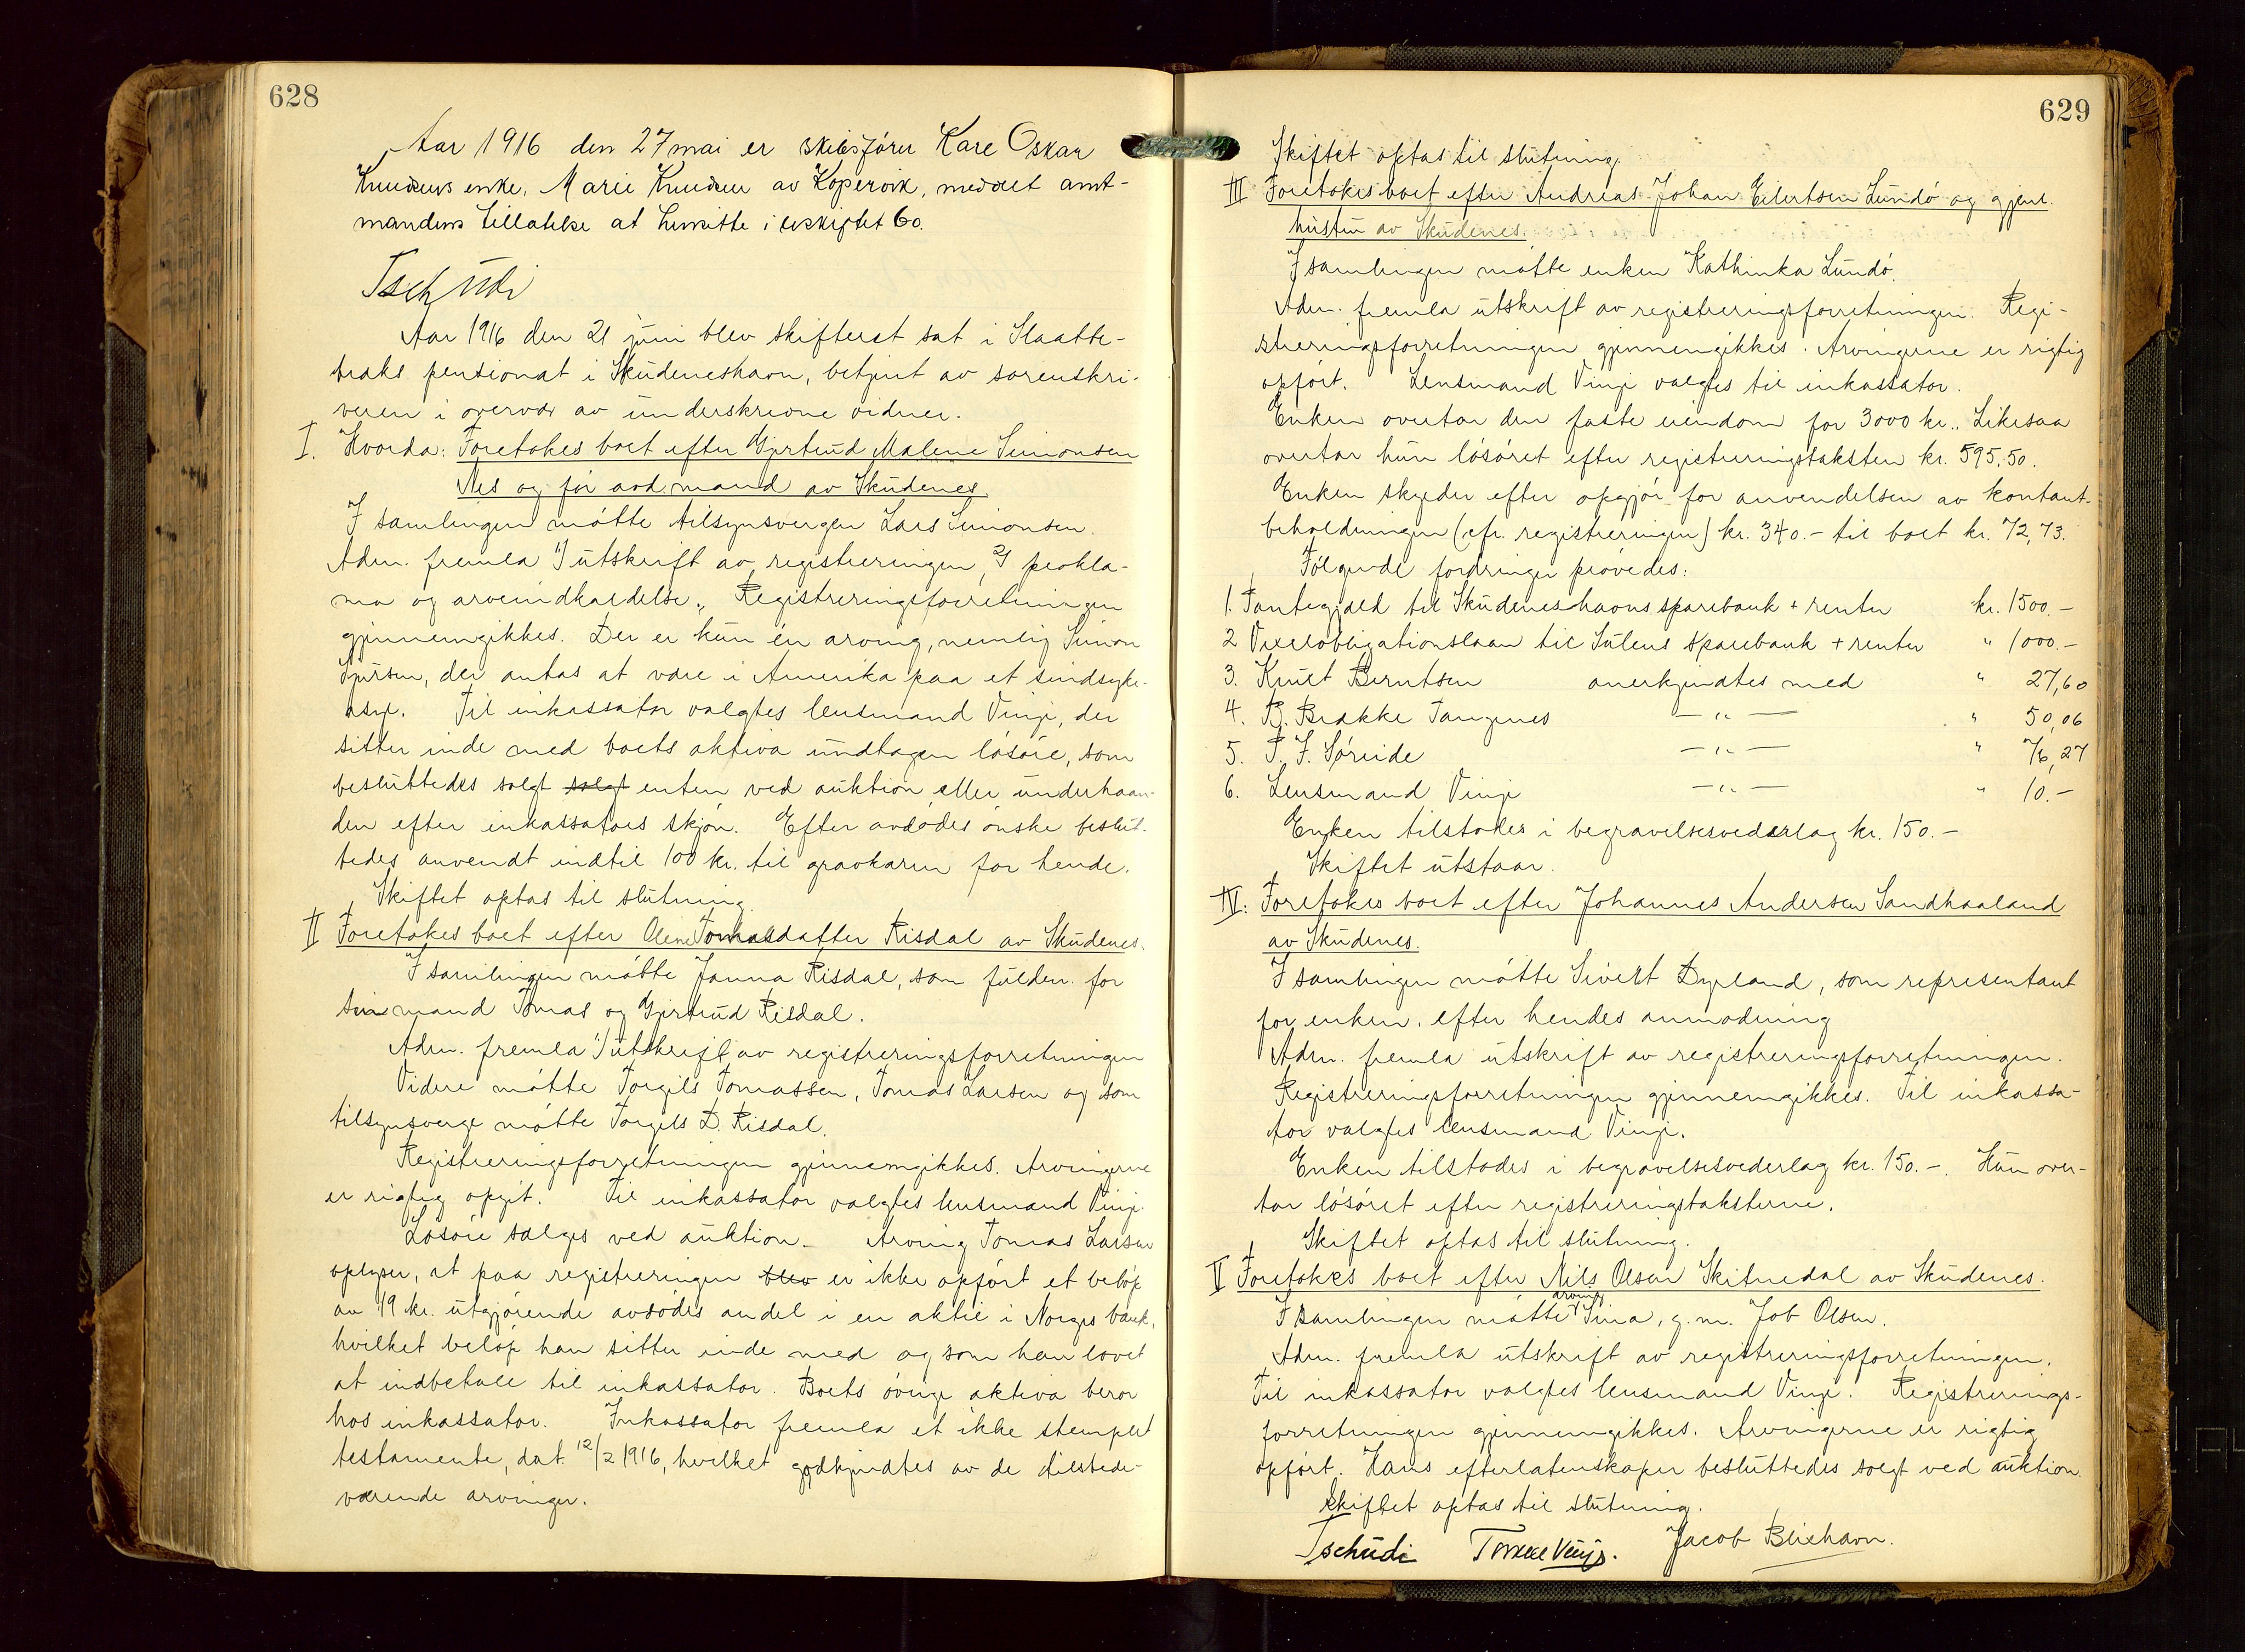 628
Aar 1916 den 27 mai er skibsfører Kare Oskar
Knudsens enke, Marie Knudsen av Kopervik, meddelt amt-
mandens tillatelse at hensitte i uskiftet bo.
Tschudi
Aar 1916 den 21 juni blev skifteret sat i Slaatte-
braks pensionat i Skudeneshavn, betjent av sorenskri-
veren i overvær av underskrevne vidner.
I. Hvorda: Foretokes boet efter Gjertrud Malene Simonsen
Nes og før avd. mand av Skudenes.
I samlingen møtte tilsynsvergen Lars Simonsen.
Adm. fremla 1) utskrift av registreringen, 2) prokla-
ma og arveindkaldelse. Registreringsforretningen
gjennemgikkes. Der er kun én arving, nemlig Simon
Sjursen, der antas at være i Amerika paa et sindsyke-
asyl. Til inkassator valgtes lensmand Vinje, der
sitter inde med boets aktiva undtagen løsøre, som
besluttedes solgt solgt enten ved auktion eller underhaan-
den efter inkassators skjøn. Efter avdødes ønske beslut-
tedes anvendt indtil 100 kr. til gravkarm for hende.
Skiftet optas til slutning.
II Foretokes boet efter Olene Tomasdatter Risdal av Skudenes.
I samlingen møtte Janna Risdal, som fuldm. for
sin mand Tomas og Gjertrud Risdal.
Adm. fremla 1) utskrift av registreringsforretningen
Videre møtte Torgils Tomassen, Tomas Larsen og som
tilsynsverge møtte Torgils D. Risdal.
Registreringsforretningen gjennemgikkes. Arvingerne
er rigtig opgit. Til inkassator valgtes lensmand Vinje.
Løsøre sælges ved auktion. Arving Tomas Larsen
oplyser, at paa registreringen blev er ikke opført et beløp
av 19 kr. utgjørende avdødes andel i en aktie i Norges bank,
hvilket beløp han sitter inde med og som han lovet
at indbetale til inkassator. Boets øvrige aktiva beror
hos inkassator. Inkassator fremla et ikke stemplet
testamente, dat. 12/2 1916, hvilket godkjendtes av de tilstede-
værende arvinger.
629
Skiftet optas til slutning.
III Foretokes boet efter Andreas Johan Eilertsen Lundø og gjenl.
hustru av Skudenes.
I samlingen møtte enken Kathinka Lundø.
Adm. fremla utskrift av registreringsforretningen. Regi-
streringsforretningen gjennemgikkes. Arvingerne er rigtig
opført. Lensmand Vinje valgtes til inkassator.
Enken overtar den faste eiendom for 3000 kr.. Likesaa
overtar hun løsøret efter registreringstaksten kr. 595,50.
Enken skylder efter opgjør for anvendelsen av kontant-
beholdningen (cfr. registreringen) kr. 340.- til boet kr. 72,73.
Følgende fordringer prøvedes:
1. Pantegjæld til Skudeneshavns sparebank + renter kr. 1500.-
2 Vexelobligationslaan til Sulens sparebank + renter " 1000.-
3. Knut Berntsen anerkjendtes med " 27,60
4. B. Brække Tangenes -"- " 50,06
5. T. J. Søreide -"- " 76,27
6. Lensmand Vinje -"- " 10.-
Enken tilstodes i begravelsesvederlag kr. 150.-
Skiftet utstaar.
IV. Foretokes boet efter Johannes Andersen Sandhaaland
av Skudenes.
I samlingen møtte Sivert Dypland, som representant
for enken, efter hendes anmodning
Adm. fremla utskrift av registreringsforretningen.
Registreringsforretningen gjennemgikkes. Til inkassa-
tor valgtes lensmand Vinje.
Enken tilstodes i begravelsesvederlag kr. 150.-. Hun over-
tar løsøret efter registreringstaksterne.
Skiftet optas til slutning.
V Foretokes boet efter Nils Olsen Skitnedal av Skudenes.
I samlingen møtte arving Sina, g. m. Job Olsen.
Adm. fremla utskrift av registreringsforretningen.
Til inkassator valgtes lensmand Vinje. Registrerings-
forretningen gjennemgikkes. Arvingerne er rigtig
opført. Hans efterlatenskaper besluttedes solgt ved auktion.
Skiftet optas til slutning.
Tschudi Torkel Vinje. Jacob Blixhavn.